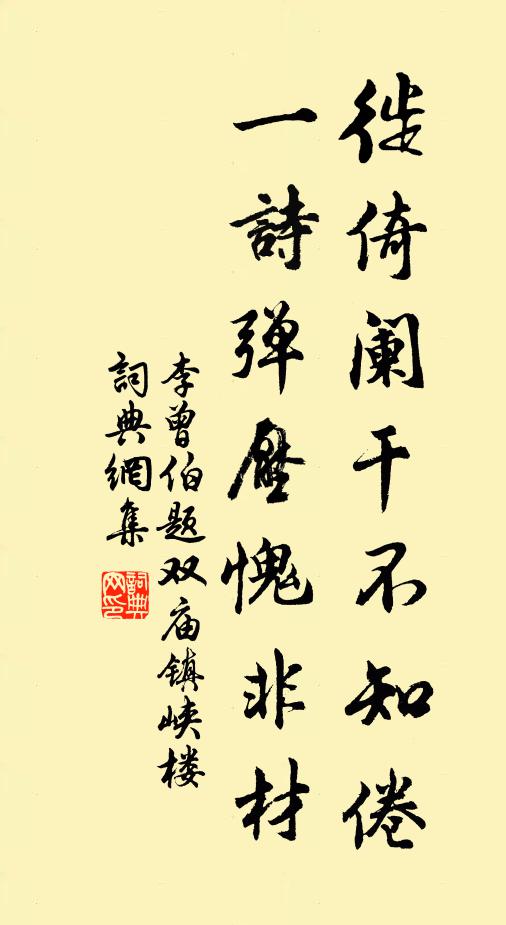 徙倚阑干不知倦
一詩弹壓愧非材
李曾伯题双庙镇峡楼
詞典網集
詞典网印